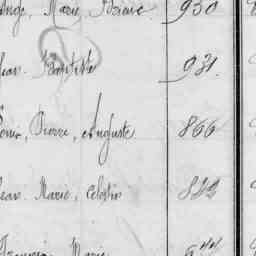 Ange, Marie, 930
Jean Baptiste 931
Louis, Pierre, Auguste 866
Jean Marie, Célestin 822
François Marie